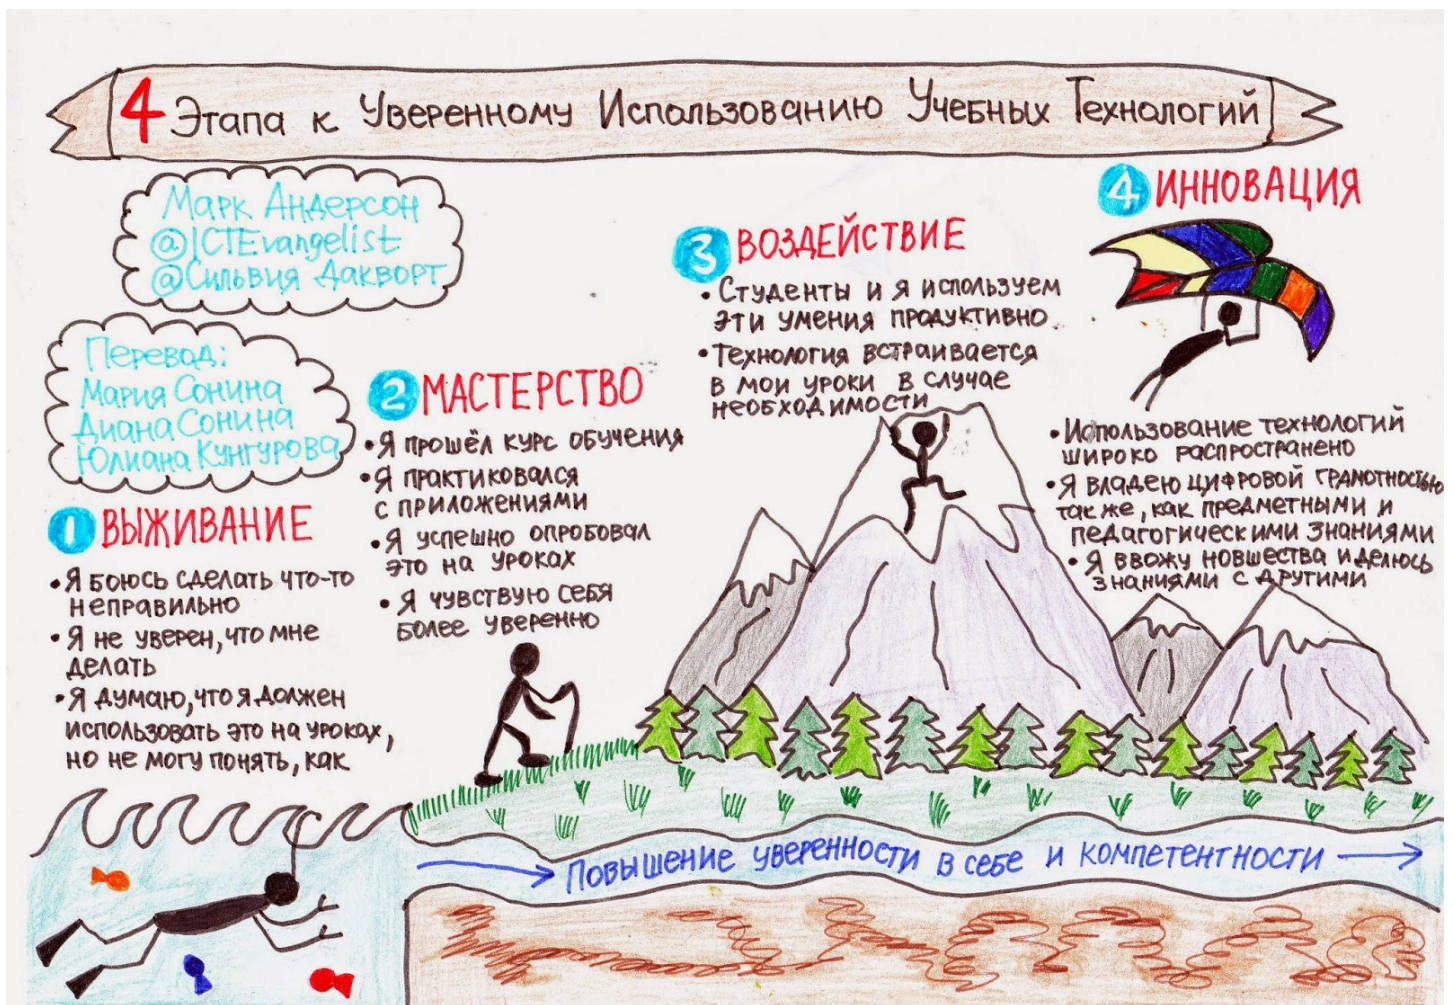 4 Этапа к Уверенному Использованию Учебных Технологий
Марк Андерсон
@ICTEvangelist
@Сильвия Дакворт
Перевод:
Мария Сонина
Диана Сонина
Юлиана Кунгурова
1 ВЫЖИВАНИЕ
• Я боюсь сделать что-то
неправильно
• Я не уверен, что мне
делать
• Я думаю, что я должен
использовать это на уроках,
но не могу понять, как
2 МАСТЕРСТВО
• Я прошёл курс обучения
• Я практиковался
с приложениями
• Я успешно опробовал
это на уроках
• Я чувствую себя
более уверенно
3 ВОЗДЕЙСТВИЕ
• Студенты и я используем
эти умения продуктивно
• Технология встраивается
в мои уроки в случае
необходимости
4 ИННОВАЦИЯ
• Использование технологий
широко распространено
• Я владею цифровой грамотностью
так же, как предметными и
педагогическими знаниями
• Я ввожу новшества и делюсь
знаниями с другими
Повышение уверенности в себе и компетентности